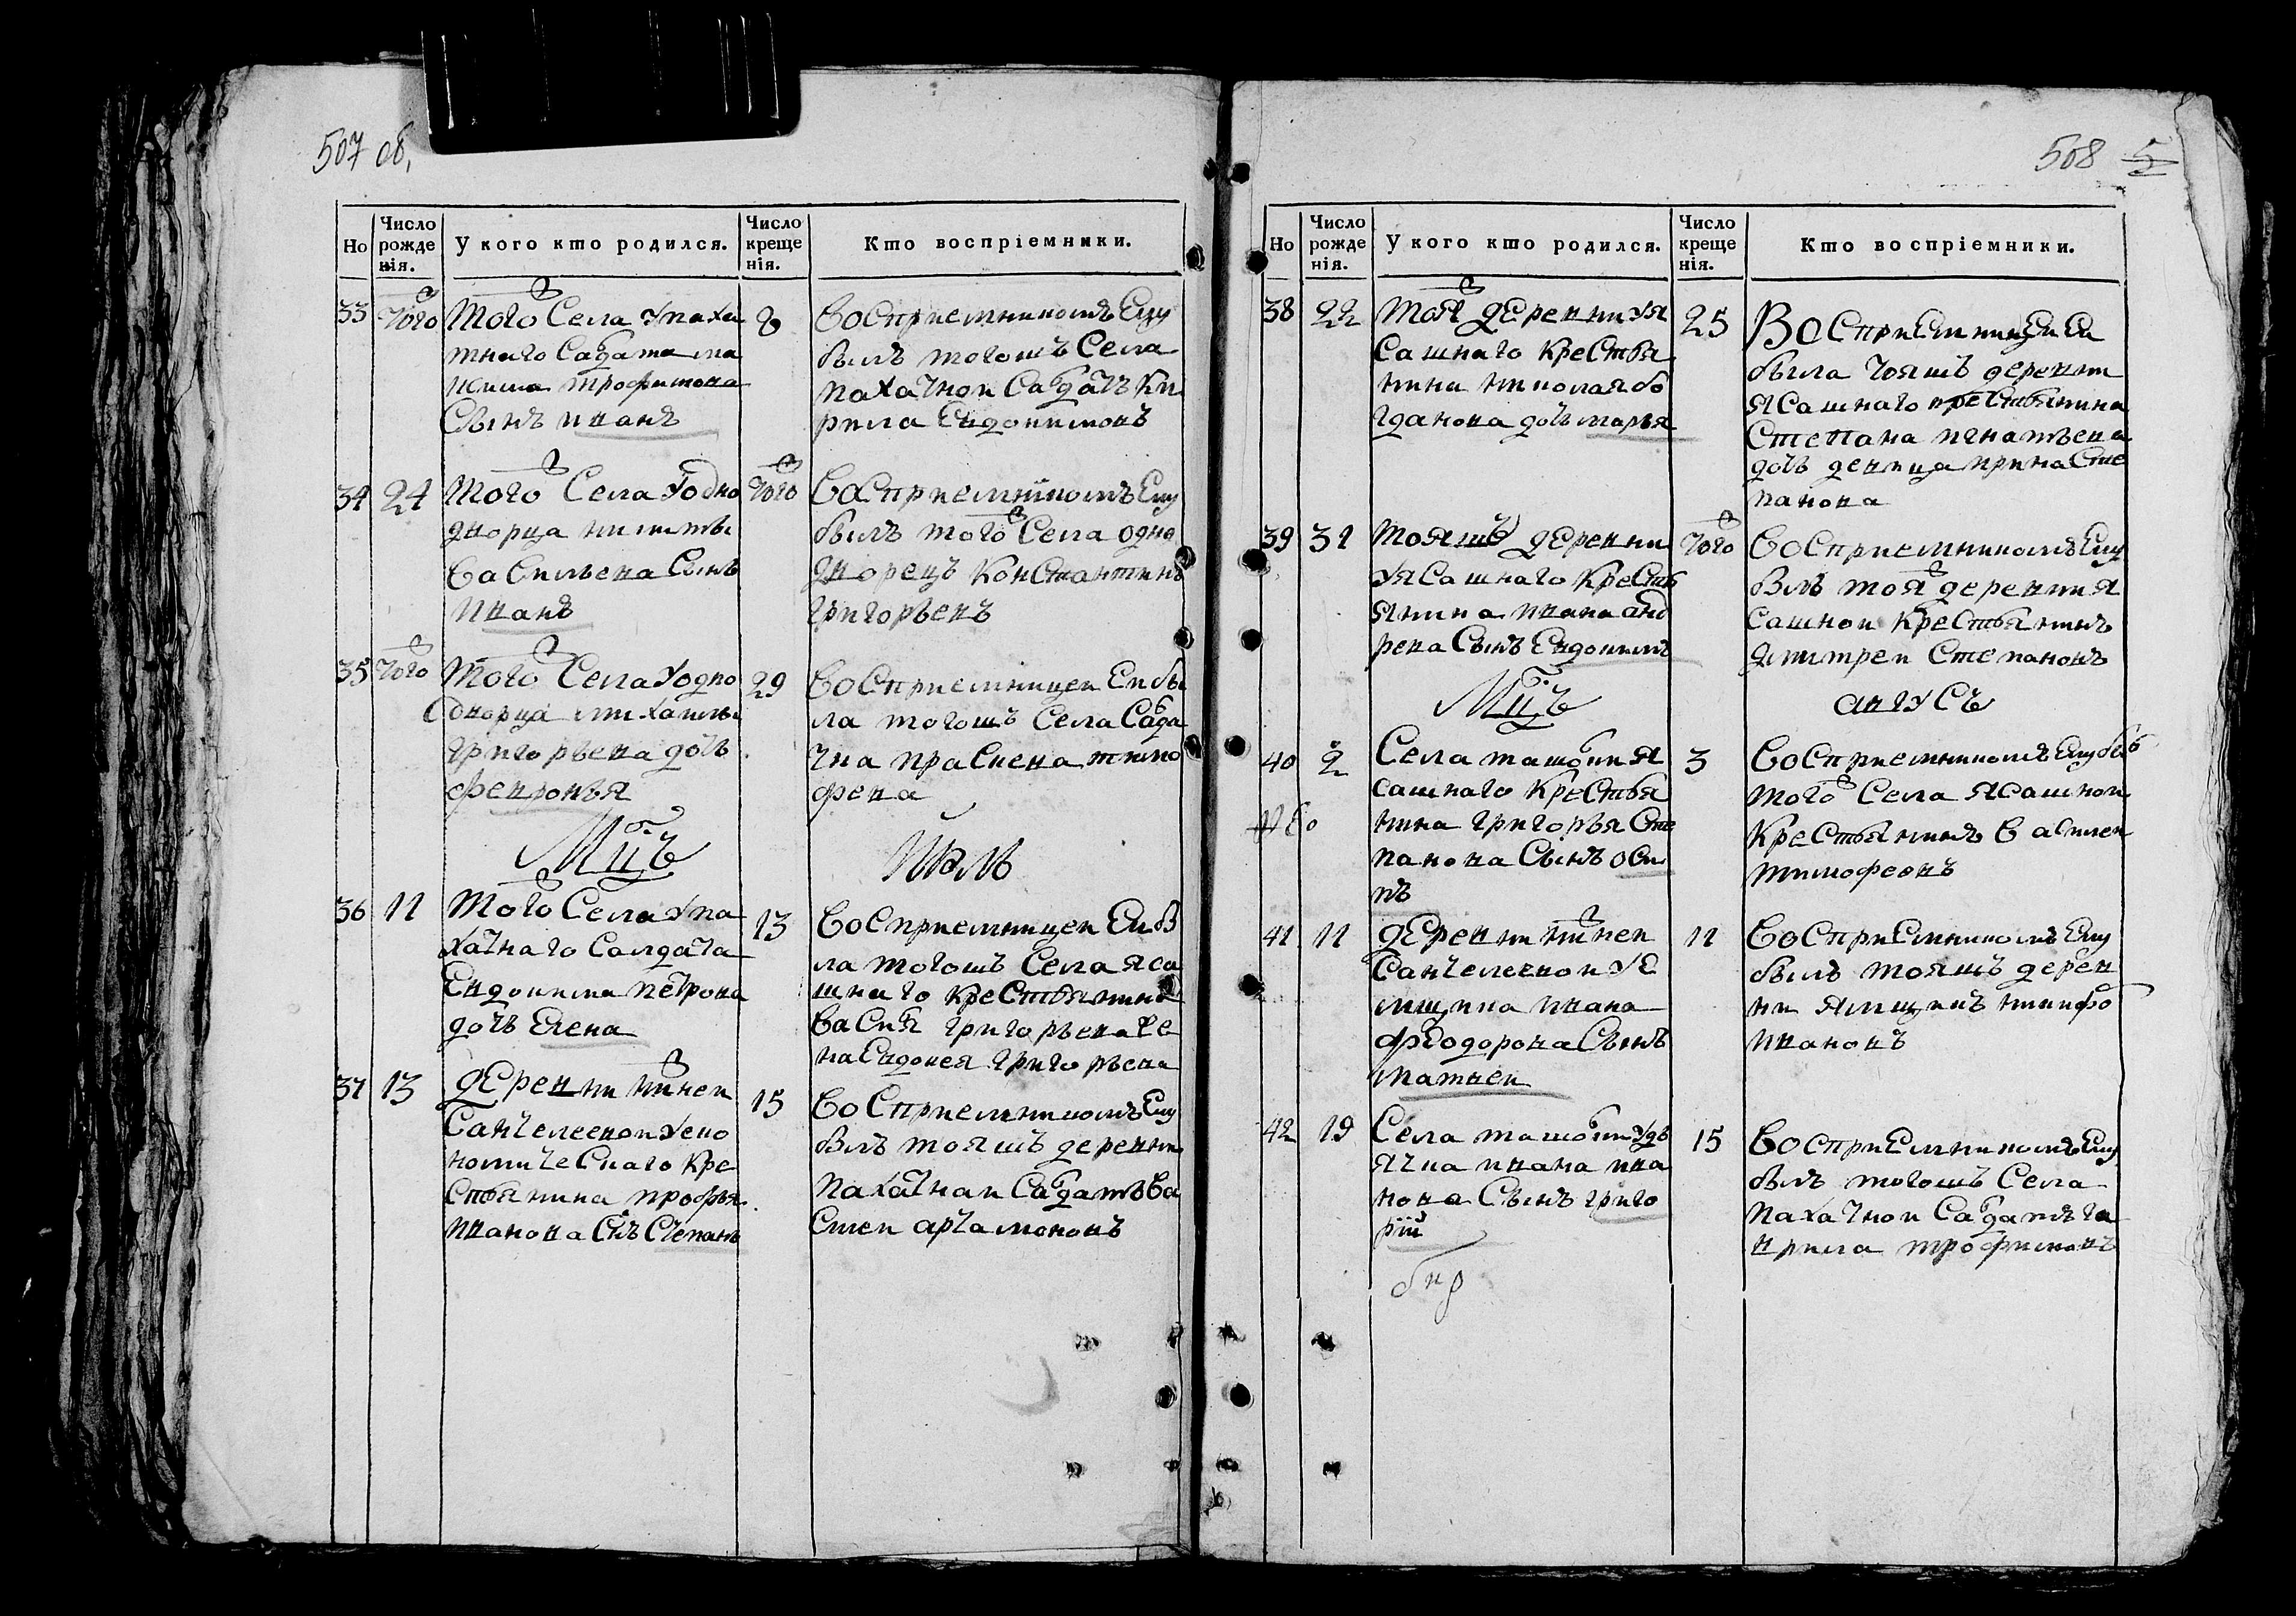 507 об,
Но
Число рожде нія.
У кого кто родился.
Число креще нія.
Кто воспріемники.
33 того
того Села У паха
тнаго Салдата ма
ѯима трофимова
Сынъ иванъ
8
восприемникомъ Ему
былъ тогошъ Села
пахатнои Салдатъ Ки
рила Евдокимовъ
34 24
того Села У одно
дворца никиты
васильева Сынъ
иванъ
того
восприемникомъ Ему
былъ того Села одно
дворецъ Константинъ
григорьевъ
35 того
того Села У одно
дворца михаилы
григорьева дочь
февронья
29
восприемницеи Еи бы
ла тогошъ Села Салда
тка прасковья тимо
феева
Мцъ
Июль
36 11
того Села У па
хатнаго Салдата
Евдокима петрова
дочь Елена
13
восприемницеи Еи бы
ла тогошъ Села яса
шнаго крестьянина
василья григорьева же
на Евдокея григорьева
37 13
деревни
Санчелеевои У еко
номическаго Кре
стьянина профья
иванова Снъ Степанъ
15
восприемникомъ Ему
былъ тояшъ деревни
пахатнаи Салдатъ ва
силеи артамоновъ
508 5
Но
Число рожде нія.
У кого кто родился.
Число креще нія.
Кто воспріемники.
38 22
тоя деревни У я
сашнаго Крестья
нина николая бо
гданова дочь марья
25
восприемницеи Еи
была тояшъ деревни
ясашнаго крестьянина
степана игнатьева
дочь девица ирина Сте
панова
39 31
тояшъ деревни
У ясашнаго Кресть
янина ивана анд
реева Сынъ Евдокимъ
того
восприемникомъ Ему
былъ тоя деревни я
сашнои Крестьянинъ
дмитреи Степановъ
Мцъ
августъ
40 2
Села ташолки я
сашнаго Крестья
нина григорья Сте
панова Сынъ оси
пъ
3
восприемникомъ Ему былъ
того Села ясашнои
Крестьянинъ василеи
тимофеовъ
41 11
деревни
Санчелеевои У я
мщика ивана
фиодорова Сынъ
матвеи
11
восприемникомъ Ему
былъ тояшъ дерев
ни ямщикъ никифо
ивановъ
42 19
Села ташолки У дь
ячка ивана ива
нова Сынъ григо
рій
15
восприемникомъ Ему
былъ тогошъ Села
пахатнои Салдатъ га
врила трофимовъ